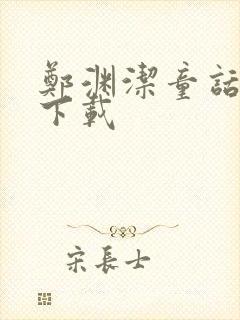 鄭渊潔童話
下載
宋長士